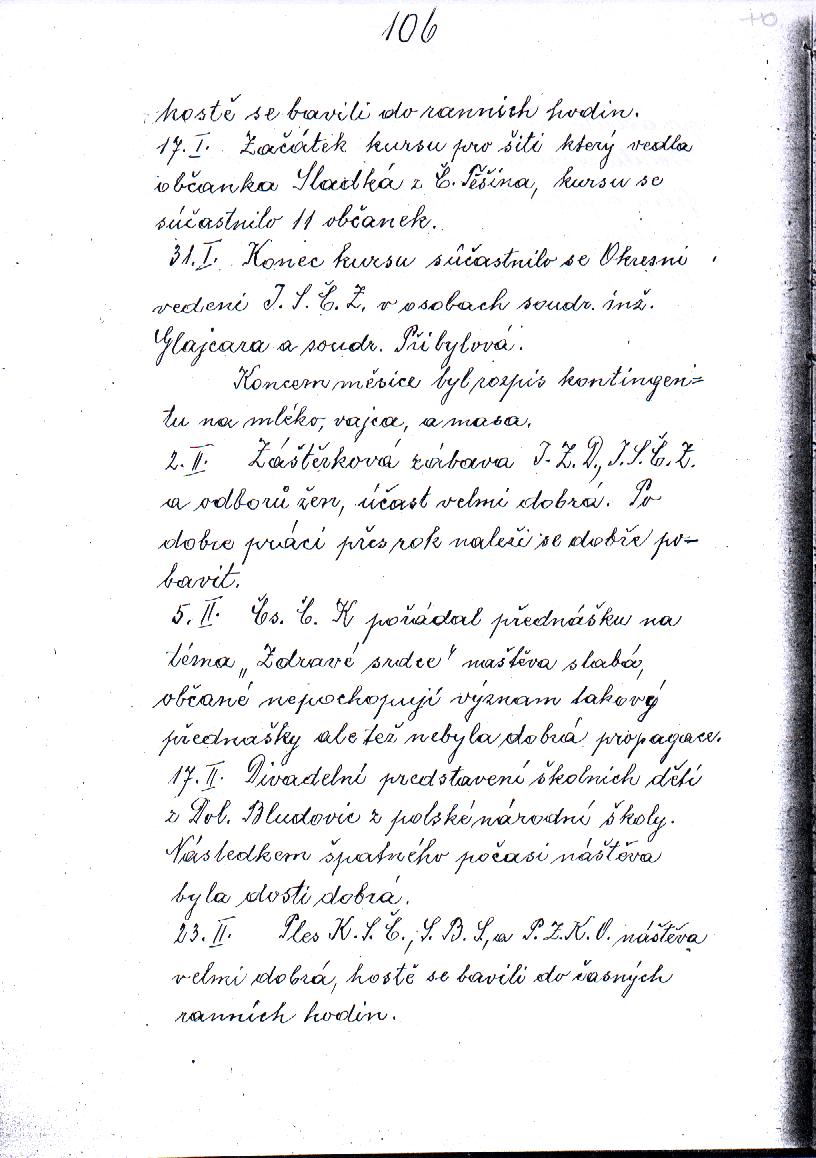 106
hostě se bavili do ranních hodin.
17.I. Začátek kursu pro šití který vedla
občanka Sladká z Č. Těšína, kursu se
súčastnilo 11 občanek.
31.I. Konec kursu súčastnilo se Okresní
vedení J. S. Č. Ž. v osobach soudr. inž.
Glajcara a soudr. Přibylová.
Koncem měsíce byl rozpis kontingen=
tu na mléko, vajca, a masa.
2.II. Zástěrková zábava J. Z. D., J. S. Č. Ž.
a odborů žen, účast velmi dobrá. Po
dobre práci přes rok naleži se dobře po-
bavit.
5.II. Čs. Č. K pořádal přednášku na
téma „Zdravé srdce" naštěva slabá,
občané nepochopují význam takový
přednašky ale též nebyla dobrá propagace.
17.II. Divadelní predstavení školních dětí
z Dol. Bludovic z polské národní školy.
Následkem špatného počasi náštěva
byla dosti dobrá.
23.II. Ples K. S. Č., S. B. S, a P. Z. K. O. náštěva
velmi dobrá, hostě se bavili do časných
ranních hodin.